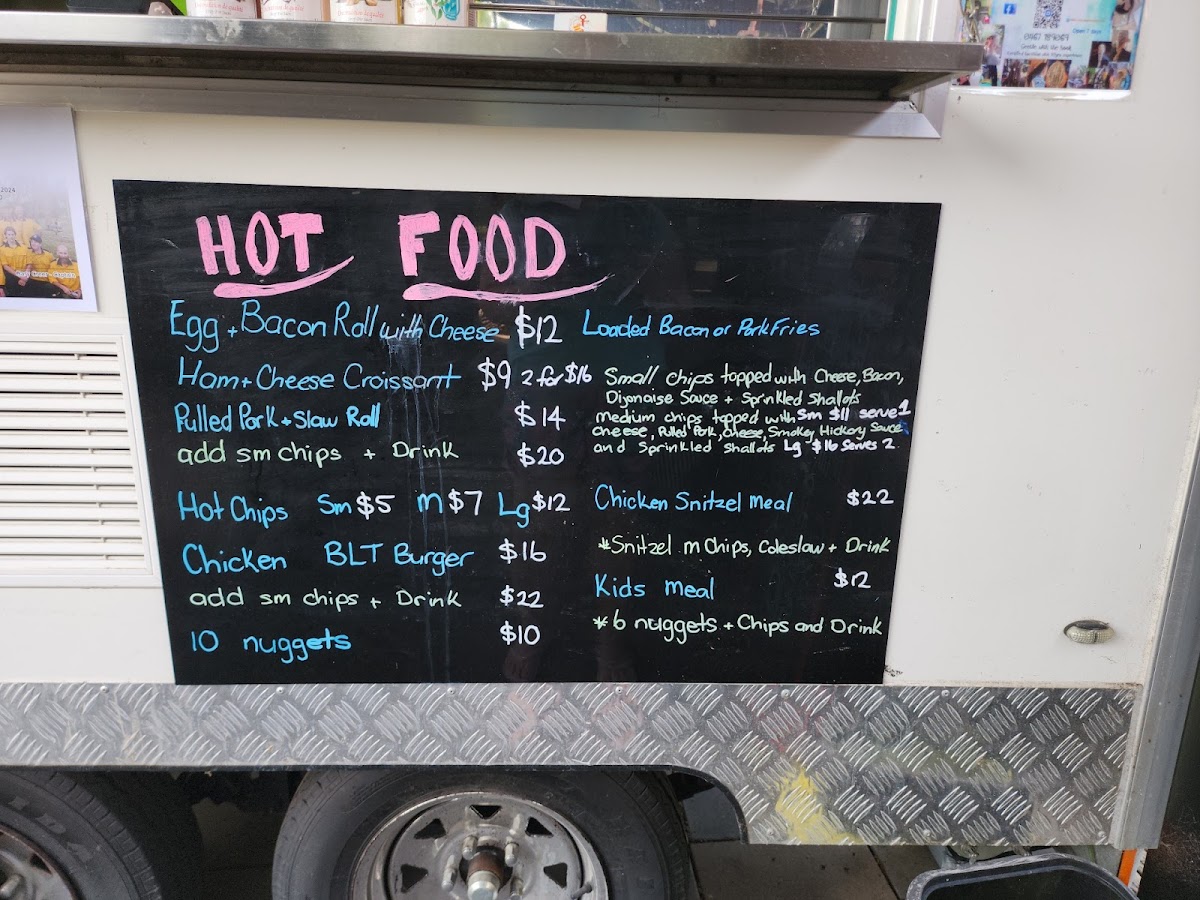 Open 7 days
2024
HOT FOOD
Egg + Bacon Roll with Cheese $12
Ham + Cheese Croissant $9 2 for $16
Pulled Pork + Slaw Roll $14
add sm chips + Drink $20
Hot Chips Sm $5 M $7 Lg $12
Chicken BLT Burger $16
add sm chips + Drink $22
10 nuggets $10
Loaded Bacon or Pork Fries
Small chips topped with Cheese, Bacon,
Dijonaise Sauce + Sprinkled Shallots
Sm $11 serve 1
medium chips topped with
cheese, Pulled Pork, cheese, Smokey Hickory Sauce
and Sprinkled Shallots Lg $16 Serves 2
Chicken Snitzel meal $22
*Snitzel m Chips, Coleslaw + Drink
Kids meal $12
*6 nuggets + Chips and Drink